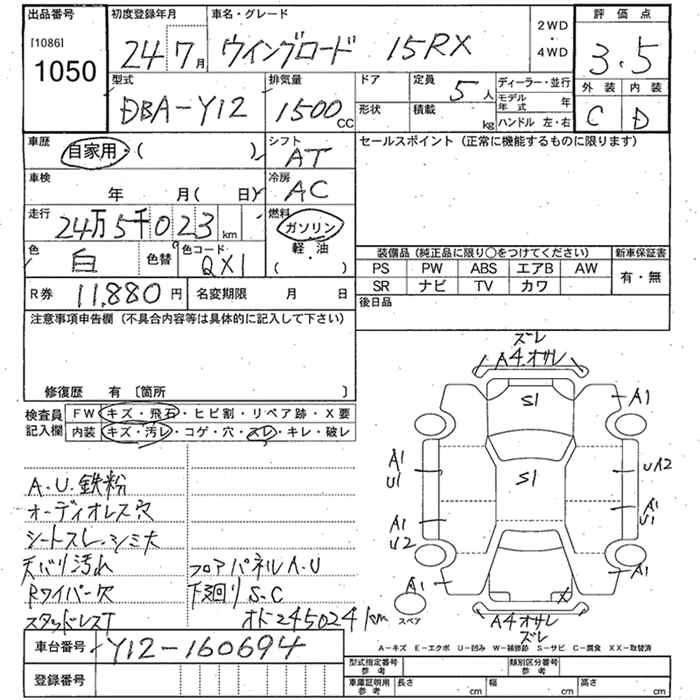 出品番号 初度登録年月 車名・グレード 2WD・4WD 評価点
[1086]
1050 24 7月 ウイングロード 15RX 3.5
型式 排気量 ドア 定員 5人 ディーラー・並行 外装 内装
DBA-Y12 1500cc 形状 積載 kg モデル年式 年 C D
ハンドル 左・右
車歴 自家用・( ) シフト AT セールスポイント (正常に機能するものに限ります)
車検 年 月( 日) 冷房 AC
走行 24万5千023km 燃料 ガソリン・軽・油 ( )
色 白 色替 色コード QX1
装備品 (純正品に限り○をつけてください) 新車保証書
PS PW ABS エアB AW 有・無
SR ナビ TV カワ
R券 11,880円 名変期限 月 日 後日品
注意事項申告欄 (不具合内容等は具体的に記入して下さい)
修復歴 有 [箇所 ]
検査員記入欄 FW キズ・飛石・ヒビ割・リペア跡・X要
内装 キズ・汚レ・コゲ・穴・スレ・キレ・破レ
A.U.鉄粉
オーディオレス穴
シートスレ・シミ大
天バリ汚れ フロアパネルA.U
Rワイパー欠 下廻りS.C
スタッドレスT オド245024km
ズレ
A4.オサレ
S1 A1
A1 U1 S1 UA2
A1 U2 A1 U1
A1 X A1
スペア A4オサレ
ズレ
A-キズ E-エクボ U-凹み W-補修跡 S-サビ C-腐食 XX-取替済
車台番号 Y12-160694 型式指定番号 参考 類別区分番号 参考
登録番号 車庫証明用 参考 長さ cm 幅 cm 高さ cm